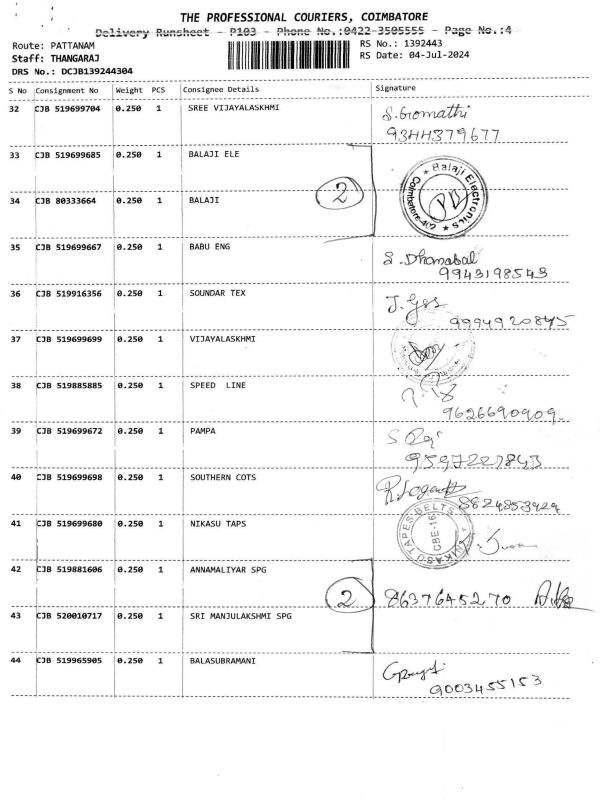 THE PROFESSIONAL COURIERS, COIMBATORE
Delivery Runsheet - P103 - Phone No.:0422-3505555 - Page No.:4
Route: PATTANAM
RS No.: 1392443
Staff: THANGARAJ
RS Date: 04-Jul-2024
DRS No.: DCJB139244304
S No Consignment No Weight PCS Consignee Details Signature
32 CJB 519699704 0.250 1 SREE VIJAYALASKHMI S. Gomathi
9344379677
33 CJB 519699685 0.250 1 BALAJI ELE
Balaji Electronics
Coimbatore-402
2
34 CJB 80333664 0.250 1 BALAJI
35 CJB 519699667 0.250 1 BABU ENG S. Dhanabal
9943198543
36 CJB 519916356 0.250 1 SOUNDAR TEX
9994920845
37 CJB 519699699 0.250 1 VIJAYALASKHMI
38 CJB 519885885 0.250 1 SPEED LINE
9626690909
39 CJB 519699672 0.250 1 PAMPA
9597227843
40 CJB 519699698 0.250 1 SOUTHERN COTS
8824853929
41 CJB 519699680 0.250 1 NIKASU TAPS
NIKASU TAPES BELTS
CBE-16
42 CJB 519881606 0.250 1 ANNAMALIYAR SPG
2
8637645270
43 CJB 520010717 0.250 1 SRI MANJULAKSHMI SPG
44 CJB 519965905 0.250 1 BALASUBRAMANI
9003455153